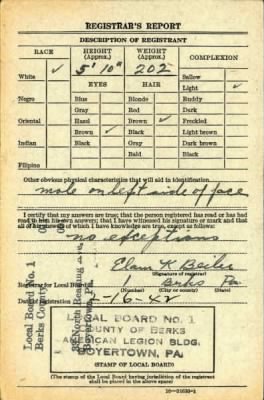 REGISTRAR'S REPORT
DESCRIPTION OF REGISTRANT
RACE HEIGHT (Approx.) WEIGHT (Approx.) COMPLEXION
White ✓ 5' 10" 202 Sallow
EYES HAIR Light ✓
Negro Blue Blonde Ruddy
Gray Red Dark
Oriental Hazel Brown ✓ Freckled
Brown ✓ Black Light brown
Indian Black Gray Dark brown
Bald Black
Filipino
Other obvious physical characteristics that will aid in identification
mole on left side of face
I certify that my answers are true; that the person registered has read or has had
read to him his own answers; that I have witnessed his signature or mark and that
all of his answers of which I have knowledge are true, except as follows:
no exceptions
Elam K Beiler
(Signature of registrar)
Registrar for Local Board Berks Pa
(Number) (City or county) (State)
Date of registration 2-16-42
Local Board No. 1
Berks County
North Reading
Boyertown, Pa.
LOCAL BOARD NO. 1
COUNTY OF BERKS
AMERICAN LEGION BLDG.
BOYERTOWN, PA.
(STAMP OF LOCAL BOARD)
(The stamp of the Local Board having jurisdiction of the registrant
shall be placed in the above space)